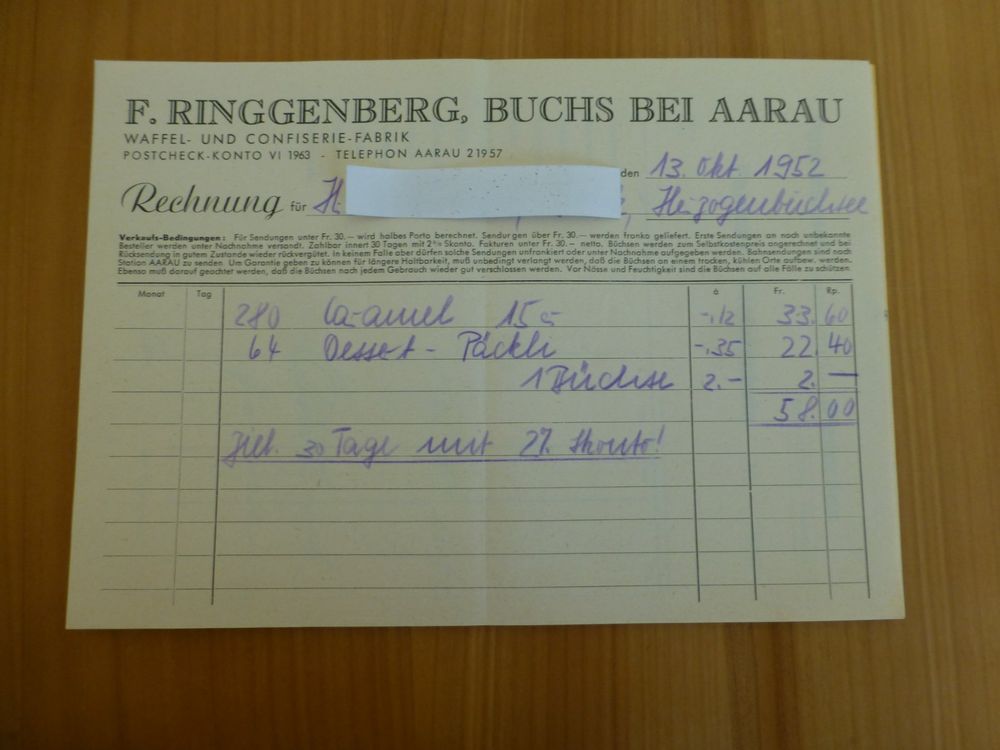 F. RINGGENBERG, BUCHS BEI AARAU
WAFFEL- UND CONFISERIE-FABRIK
POSTCHECK-KONTO VI 1963 - TELEPHON AARAU 21957
den 13. Okt 1952
Rechnung für H. , Herzogenbuchsee
Verkaufs-Bedingungen: Für Sendungen unter Fr. 30.– wird halbes Porto berechnet. Sendungen über Fr. 30.– werden franko geliefert. Erste Sendungen an noch unbekannte
Besteller werden unter Nachnahme versandt. Zahlbar innert 30 Tagen mit 2% Skonto. Fakturen unter Fr. 30.– netto. Büchsen werden zum Selbstkostenpreis angerechnet und bei
Rücksendung in gutem Zustande wieder rückvergütet. In keinem Falle aber dürfen solche Sendungen unfrankiert oder unter Nachnahme aufgegeben werden. Bahnsendungen sind nach
Station AARAU zu senden. Um Garantie geben zu können für längere Haltbarkeit, muß unbedingt verlangt werden, daß die Büchsen an einem trocken, kühlen Orte aufbew. werden.
Ebenso muß darauf geachtet werden, daß die Büchsen nach jedem Gebrauch wieder gut verschlossen werden. Vor Nässe und Feuchtigkeit sind die Büchsen auf alle Fälle zu schützen.
Monat Tag à Fr. Rp.
280 Caramel 15 -.12 33. 60
64 Dessert - Päckli -.35 22. 40
1 Büchse 2.- 2. —
58. 00
30 Tage mit 2% Skonto!